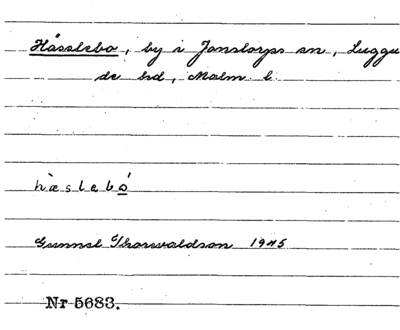 Hässlebo, by i Jonstorps sn, Luggu
de hd, Malm. l.
hæslebó
Gunnel Thorwaldson 1945
Nr 5683.